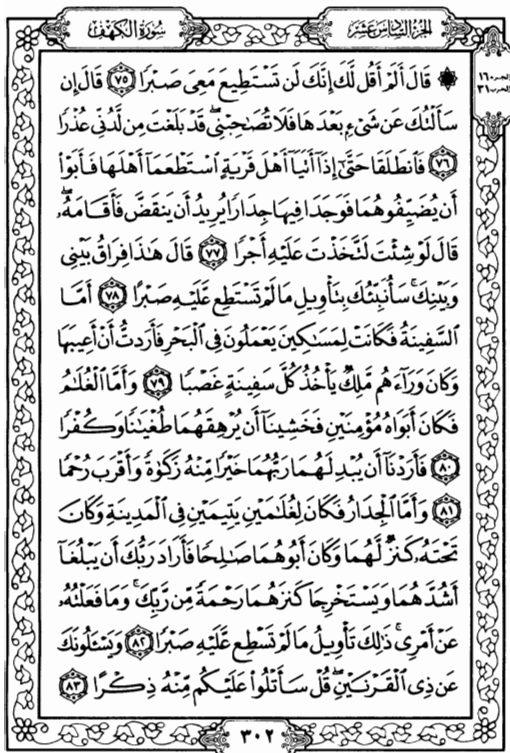 سُورَةُ الكَهْفِ
الجُزْءُ السَّادِسَ عَشَرَ
۞ قَالَ أَلَمْ أَقُل لَّكَ إِنَّكَ لَن تَسْتَطِيعَ مَعِيَ صَبْرًا ٧٥ قَالَ إِن
سَأَلْتُكَ عَن شَيْءٍۭ بَعْدَهَا فَلَا تُصَٰحِبْنِي ۖ قَدْ بَلَغْتَ مِن لَّدُنِّي عُذْرًا
٧٦ فَٱنطَلَقَا حَتَّىٰٓ إِذَآ أَتَيَآ أَهْلَ قَرْيَةٍ ٱسْتَطْعَمَآ أَهْلَهَا فَأَبَوْا۟
أَن يُضَيِّفُوهُمَا فَوَجَدَا فِيهَا جِدَارًا يُرِيدُ أَن يَنقَضَّ فَأَقَامَهُۥ ۖ
قَالَ لَوْ شِئْتَ لَتَّخَذْتَ عَلَيْهِ أَجْرًا ٧٧ قَالَ هَٰذَا فِرَاقُ بَيْنِي
وَبَيْنِكَ ۚ سَأُنَبِّئُكَ بِتَأْوِيلِ مَا لَمْ تَسْتَطِع عَّلَيْهِ صَبْرًا ٧٨ أَمَّا
ٱلسَّفِينَةُ فَكَانَتْ لِمَسَٰكِينَ يَعْمَلُونَ فِي ٱلْبَحْرِ فَأَرَدتُّ أَنْ أَعِيبَهَا
وَكَانَ وَرَآءَهُم مَّلِكٌ يَأْخُذُ كُلَّ سَفِينَةٍ غَصْبًا ٧٩ وَأَمَّا ٱلْغُلَٰمُ
فَكَانَ أَبَوَاهُ مُؤْمِنَيْنِ فَخَشِينَآ أَن يُرْهِقَهُمَا طُغْيَٰنًا وَكُفْرًا
٨٠ فَأَرَدْنَآ أَن يُبْدِلَهُمَا رَبُّهُمَا خَيْرًا مِّنْهُ زَكَوٰةً وَأَقْرَبَ رُحْمًا
٨١ وَأَمَّا ٱلْجِدَارُ فَكَانَ لِغُلَٰمَيْنِ يَتِيمَيْنِ فِي ٱلْمَدِينَةِ وَكَانَ
تَحْتَهُۥ كَنزٌ لَّهُمَا وَكَانَ أَبُوهُمَا صَٰلِحًا فَأَرَادَ رَبُّكَ أَن يَبْلُغَآ
أَشُدَّهُمَا وَيَسْتَخْرِجَا كَنزَهُمَا رَحْمَةً مِّن رَّبِّكَ ۚ وَمَا فَعَلْتُهُۥ
عَنْ أَمْرِي ۚ ذَٰلِكَ تَأْوِيلُ مَا لَمْ تَسْطِع عَّلَيْهِ صَبْرًا ٨٢ وَيَسْـَٔلُونَكَ
عَن ذِي ٱلْقَرْنَيْنِ ۖ قُلْ سَأَتْلُوا۟ عَلَيْكُم مِّنْهُ ذِكْرًا ٨٣
٣٠٢